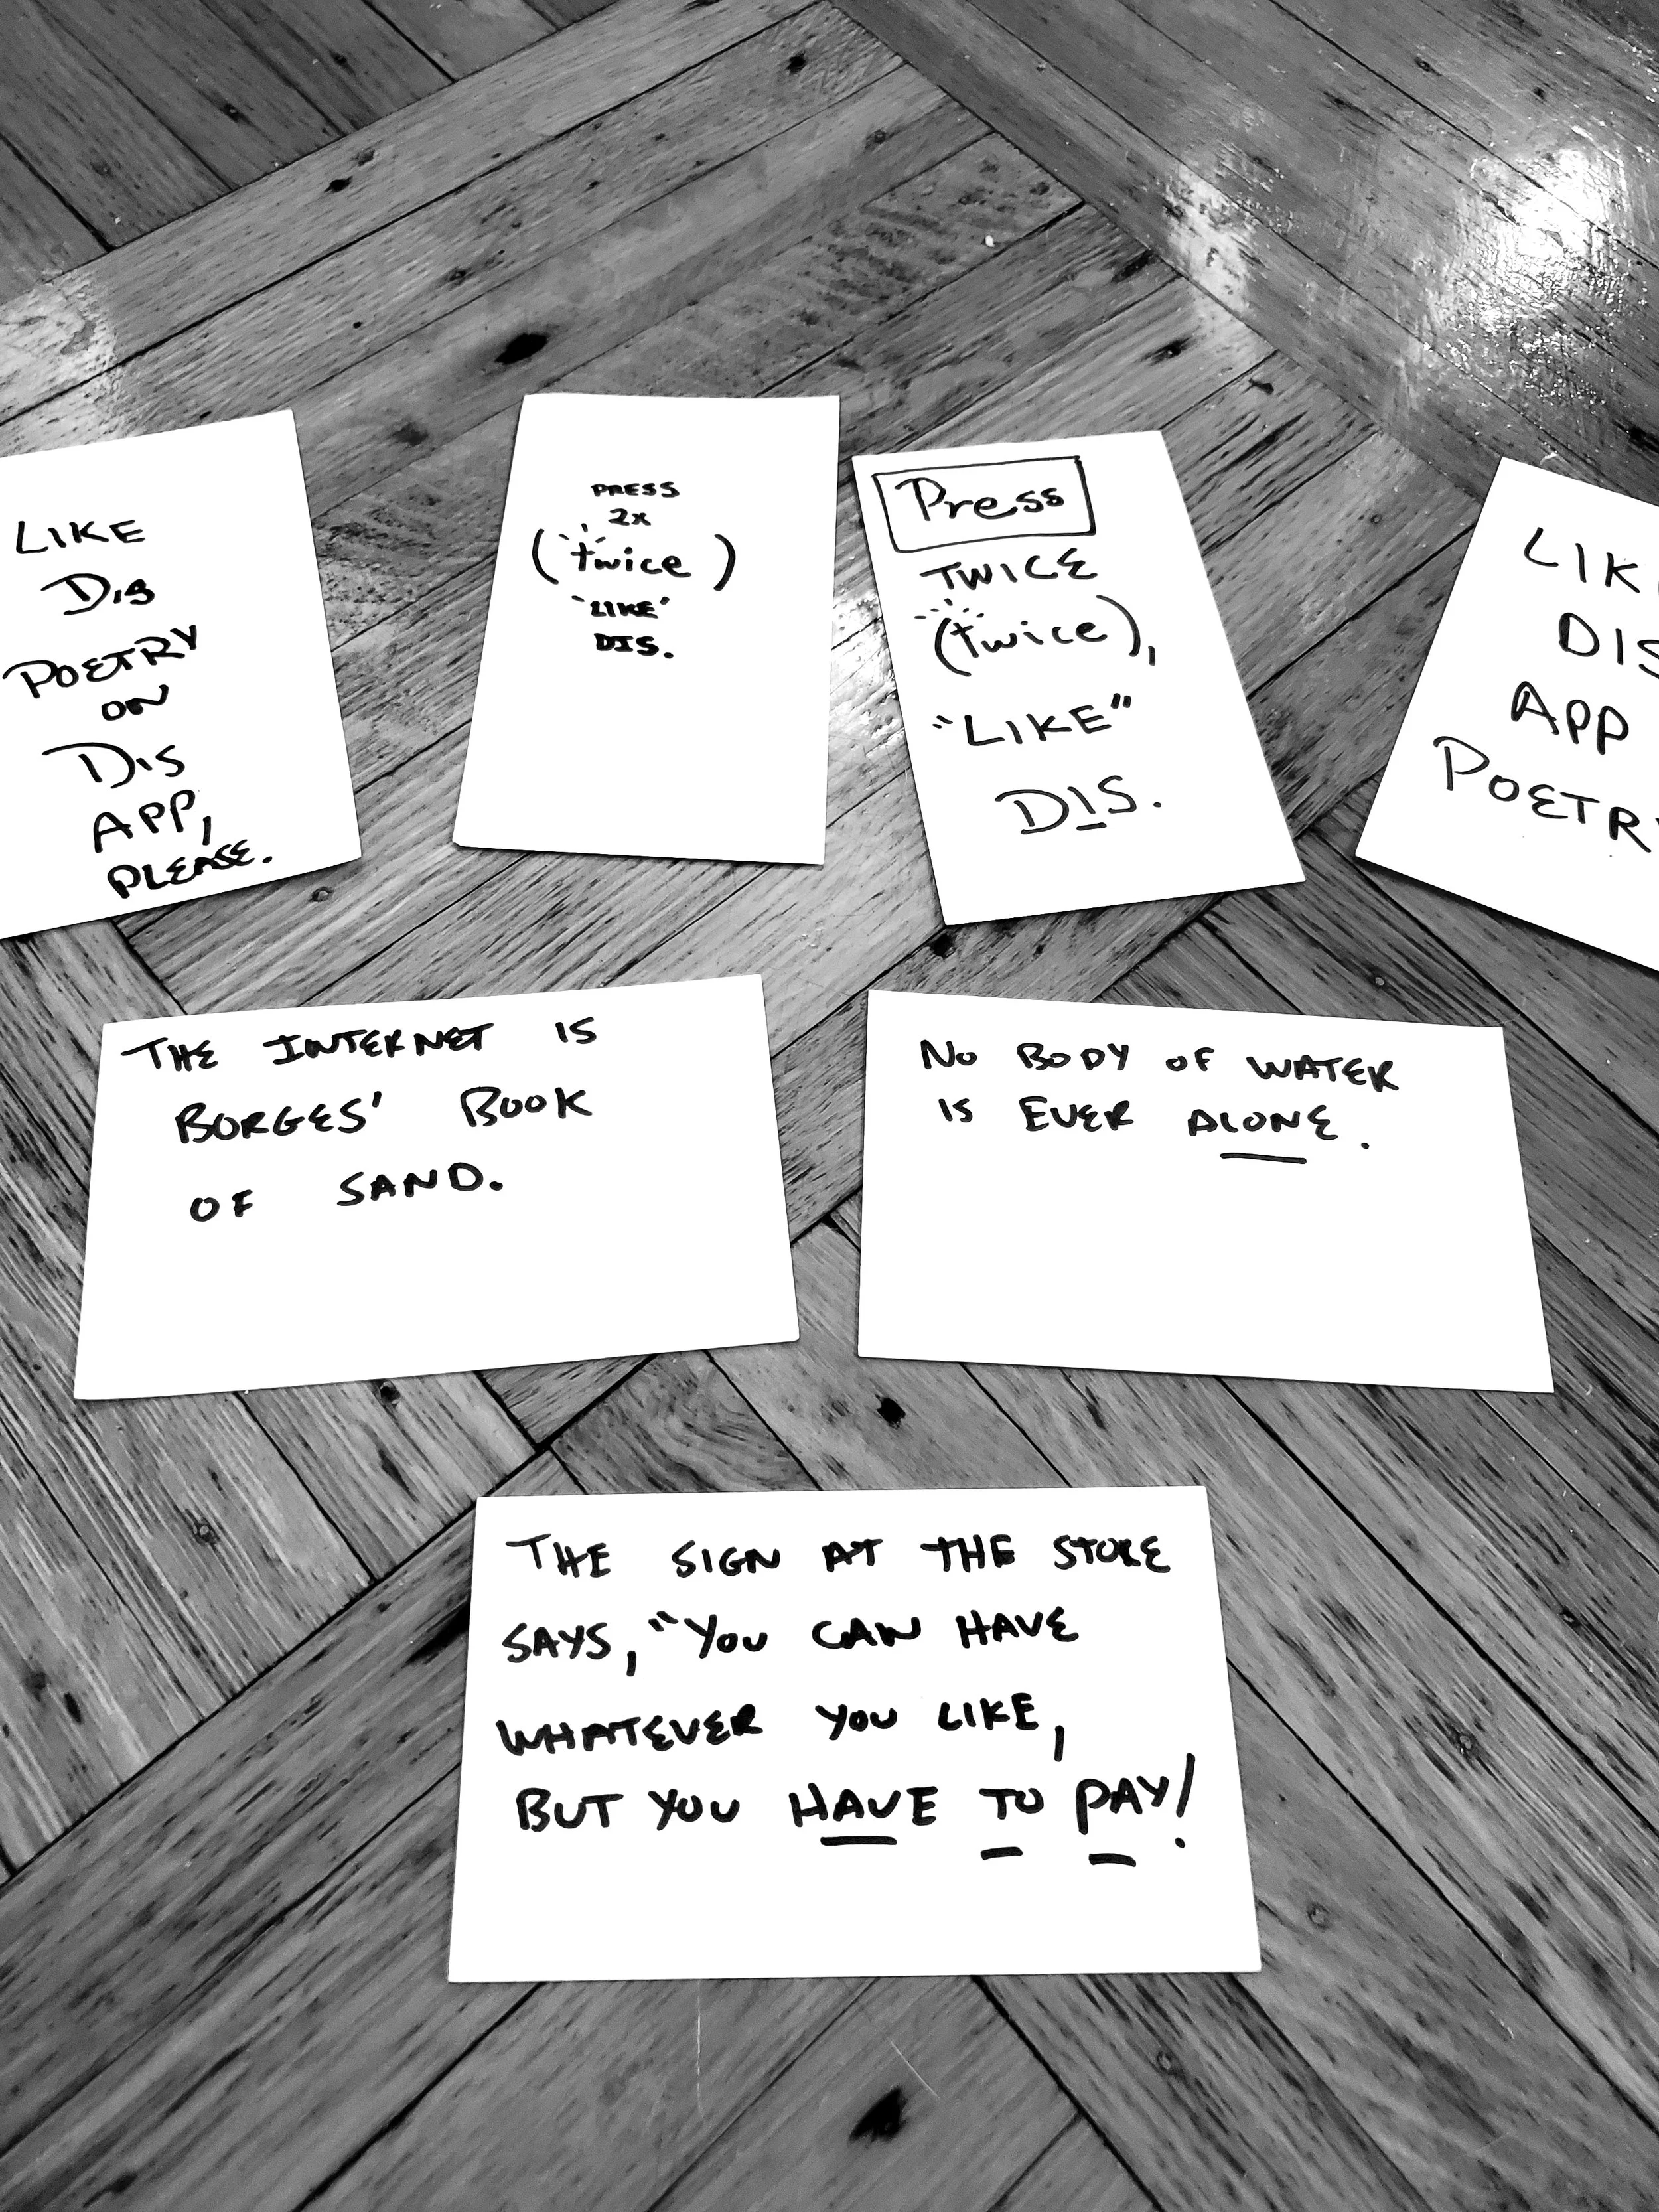 LIKE
DIS
POETRY
ON
DIS
APP,
PLEASE.
PRESS
2x
(twice)
'LIKE'
DIS.
Press
TWICE
(twice),
"LIKE"
DIS.
LIK
DIS
APP
POETRY
THE INTERNET IS
BORGES' BOOK
OF SAND.
NO BODY OF WATER
IS EVER ALONE.
THE SIGN AT THE STORE
SAYS, "YOU CAN HAVE
WHATEVER YOU LIKE,
BUT YOU HAVE TO PAY!